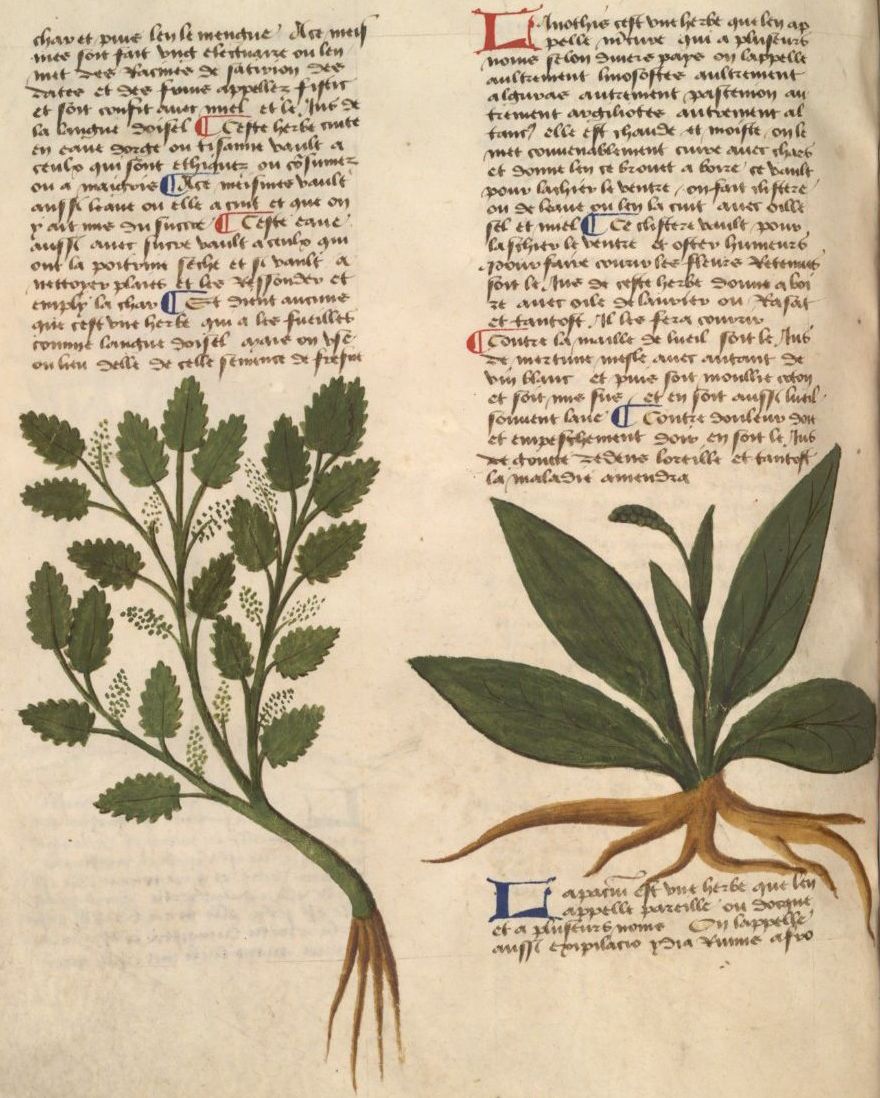 char et puis len le mengue Ace meis
mes soit fait ung electuaire ou len
met des Racines de satirion des
dates et des fruis appellez fistic
et soit confit auec miel et le Jus de
la langue doisel ¶ Ceste herbe cuite
en eaue dorge ou tisanne vault a
ceulx qui sont ethiques ou cōsumez
ou a maigris ¶ Ace meismes vault
aussi leaue ou elle a cuit et que on
y ait mis du succre ¶ Ceste eaue
aussi auec sucre vault a ceulx qui
ont la poitrine seche et si vault a
nettoyer plaies et les Ressouder et
emplir la char ¶ Et dient aucuns
que cest vne herbe qui a les fueilles
comme langue doisel mais on vse
ou lieu delle de celle semence de fresne
Linothis cest vne herbe que len ap
pelle mercure qui a plusieurs
noms selon diuers pays on lappelle
aultrement linosostes aultrement
alguras autrement partenion au
trement argiliotes autrement al
tanc elle est chaude et moiste on le
met conuenablement cuire auec chars
et donne len ce brouet a boire ce vault
pour laschier le ventre on fait clistere
ou de leaue ou len la cuit auec oille
sel et miel ¶ Ce clistere vault pour
laschier le ventre et oster humeurs
pour faire courir les fleurs Retenues
soit le Jus de ceste herbe donne a boi
re auec oile de laurier ou Rasat
et tantost Il les fera courir
¶ Contre la maille de lueil soit le Jus
de mercure mesle auec autant de
vin blanc et puis soit moullie coton
et soit mis sus et en soit aussi lueil
souuent laue ¶ Contre douleur doir
et empeschement doir en soit le Jus
degoute dedens loreille et tantost
la maladie amendra
Lapaciū est vne herbe que len
appelle pareille ou docque
et a plusieurs noms On lappelle
aussi expilacio ydia Rumis afro